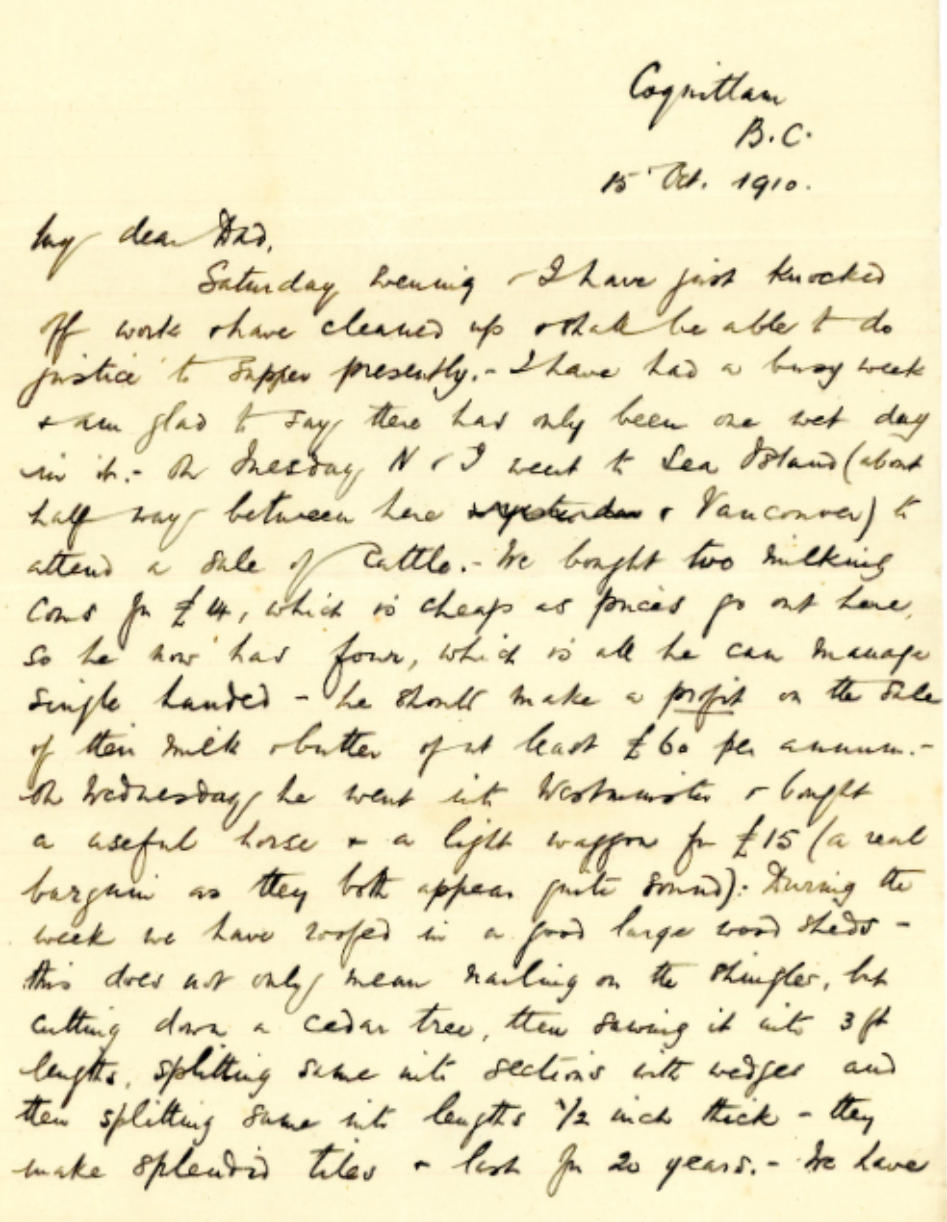 Coquitlam
B.C.
15 Oct. 1910.
My dear Dad,
Saturday evening & I have just knocked
off work & have cleaned up & shall be able to do
justice to supper presently.- I have had a busy week
& am glad to say there has only been one wet day
in it.- On Tuesday N & I went to Sea Island (about
half way between here & Vancouver) to
attend a sale of cattle.- We bought two milking
cows for £14, which is cheap as prices go out here,
so he now has four, which is all he can manage
single handed - he should make a profit on the sale
of their milk & butter of at least £60 per annum.-
On Wednesday he went into Westminster & bought
a useful horse & a light waggon for £15 (a real
bargain as they both appear quite sound): During the
week we have roofed in a good large wood sheds -
this does not only mean nailing on the shingles, but
cutting down a cedar tree, then sawing it into 3 ft
lengths, splitting same into sections with wedges and
then splitting same into lengths 1/2 inch thick - they
make splendid tiles & last for 20 years.- We have